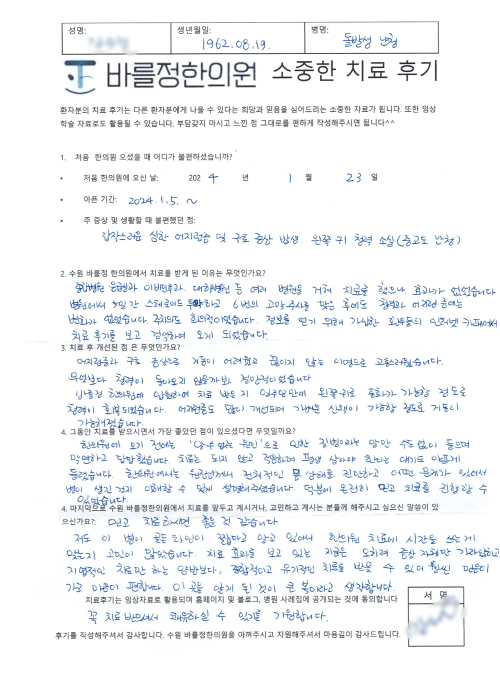 성명:
생년월일:
1962.08.19.
병명:
돌발성 난청
바를정한의원 소중한 치료 후기
환자분의 치료 후기는 다른 환자분에게 나을 수 있다는 희망과 믿음을 심어드리는 소중한 자료가 됩니다. 또한 임상
학술 자료로도 활용될 수 있습니다. 부담갖지 마시고 느낀 점 그대로를 편하게 작성해주시면 됩니다^^
1. 처음 한의원 오셨을 때 어디가 불편하셨습니까?
• 처음 한의원에 오신 날: 2024 년 1 월 23 일
• 아픈 기간: 2024.1.5. ~
• 주 증상 및 생활할 때 불편했던 점:
갑작스러운 심한 어지럼증 및 구토 증상 발생. 왼쪽 귀 청력 소실(중고도 난청)
2. 수원 바를정 한의원에서 치료를 받게 된 이유는 무엇인가요?
응급실 이비인후과. 대학병원 등 여러 병원을 거쳐 치료를 했으나 효과가 없었습니다
병원에서 5일간 스테로이드 하고 6번의 고막주사를 맞은 후에도 청력과 어지럼증에는
변화가 없었습니다. 회의적이었습니다. 정보를 얻기 위해 가입한 환우들의 인터넷 카페에서
치료 후기를 보고 검색하여 오게 되었습니다.
3. 치료 후 개선된 점은 무엇인가요?
어지럼증과 구토 증상으로 거동이 어려웠고 끊이지 않는 이명으로 고통스러웠습니다.
무엇보다 청력이 돌아오지 않을까봐 절망적이었습니다.
바를정 한의원에 입원하여 치료 받은 지 일주일만에 왼쪽귀로 통화가 가능할 정도로
청력이 회복되었습니다. 어지럼증도 많이 개선되어 가벼운 산책이 가능할 정도로 거동이
가능해졌습니다.
4. 그동안 치료를 받으시면서 가장 좋았던 점이 있으셨다면 무엇인가요?
한의원에 오기 전에는 '알 수 없는 원인'으로 인한 질병이라는 말만 수도 없이 들으며
막연하고 답답했습니다. 치료는 되지 않고 적응하며 평생 살아야 한다는 얘기도 많이
들었습니다. 한의원에서는 원장님께서 전체적인 몸 상태를 진단하고 어떤 문제가 있어서
병이 생긴 건지 이해할 수 있게 설명해주셨습니다. 덕분에 온전히 믿고 치료를 진행할 수
있었습니다.
4. 마지막으로 수원 바를정한의원에서 치료를 앞두고 계시거나, 고민하고 계시는 분들께 해주시고 싶으신 말씀이 있
으신가요?: 믿고 치료하시면 좋을 것 같습니다
저도 이 병이 골든타임이 짧다고 알고 있어서 한의원 치료에 시간을 쓰는게
맞는지 고민이 많았습니다. 치료 효과를 보고 있는 지금은 오히려
치료만 하는 양방보다, 종합적이고 유기적인 치료를 받을 수 있어 훨씬 마음이
가고 마음이 편합니다. 이 곳을 알게 된 것이 큰 복이라고 생각합니다.
치료후기는 임상자료로 활용되며 홈페이지 및 블로그, 병원 사례집에 공개되는 것에 동의합니다
꼭 치료 받으셔서 쾌유하실 수 있기를 기원합니다.
서 명
후기를 작성해주셔서 감사합니다. 수원 바를정한의원을 아껴주시고 지원해주셔서 마음깊이 감사드립니다.